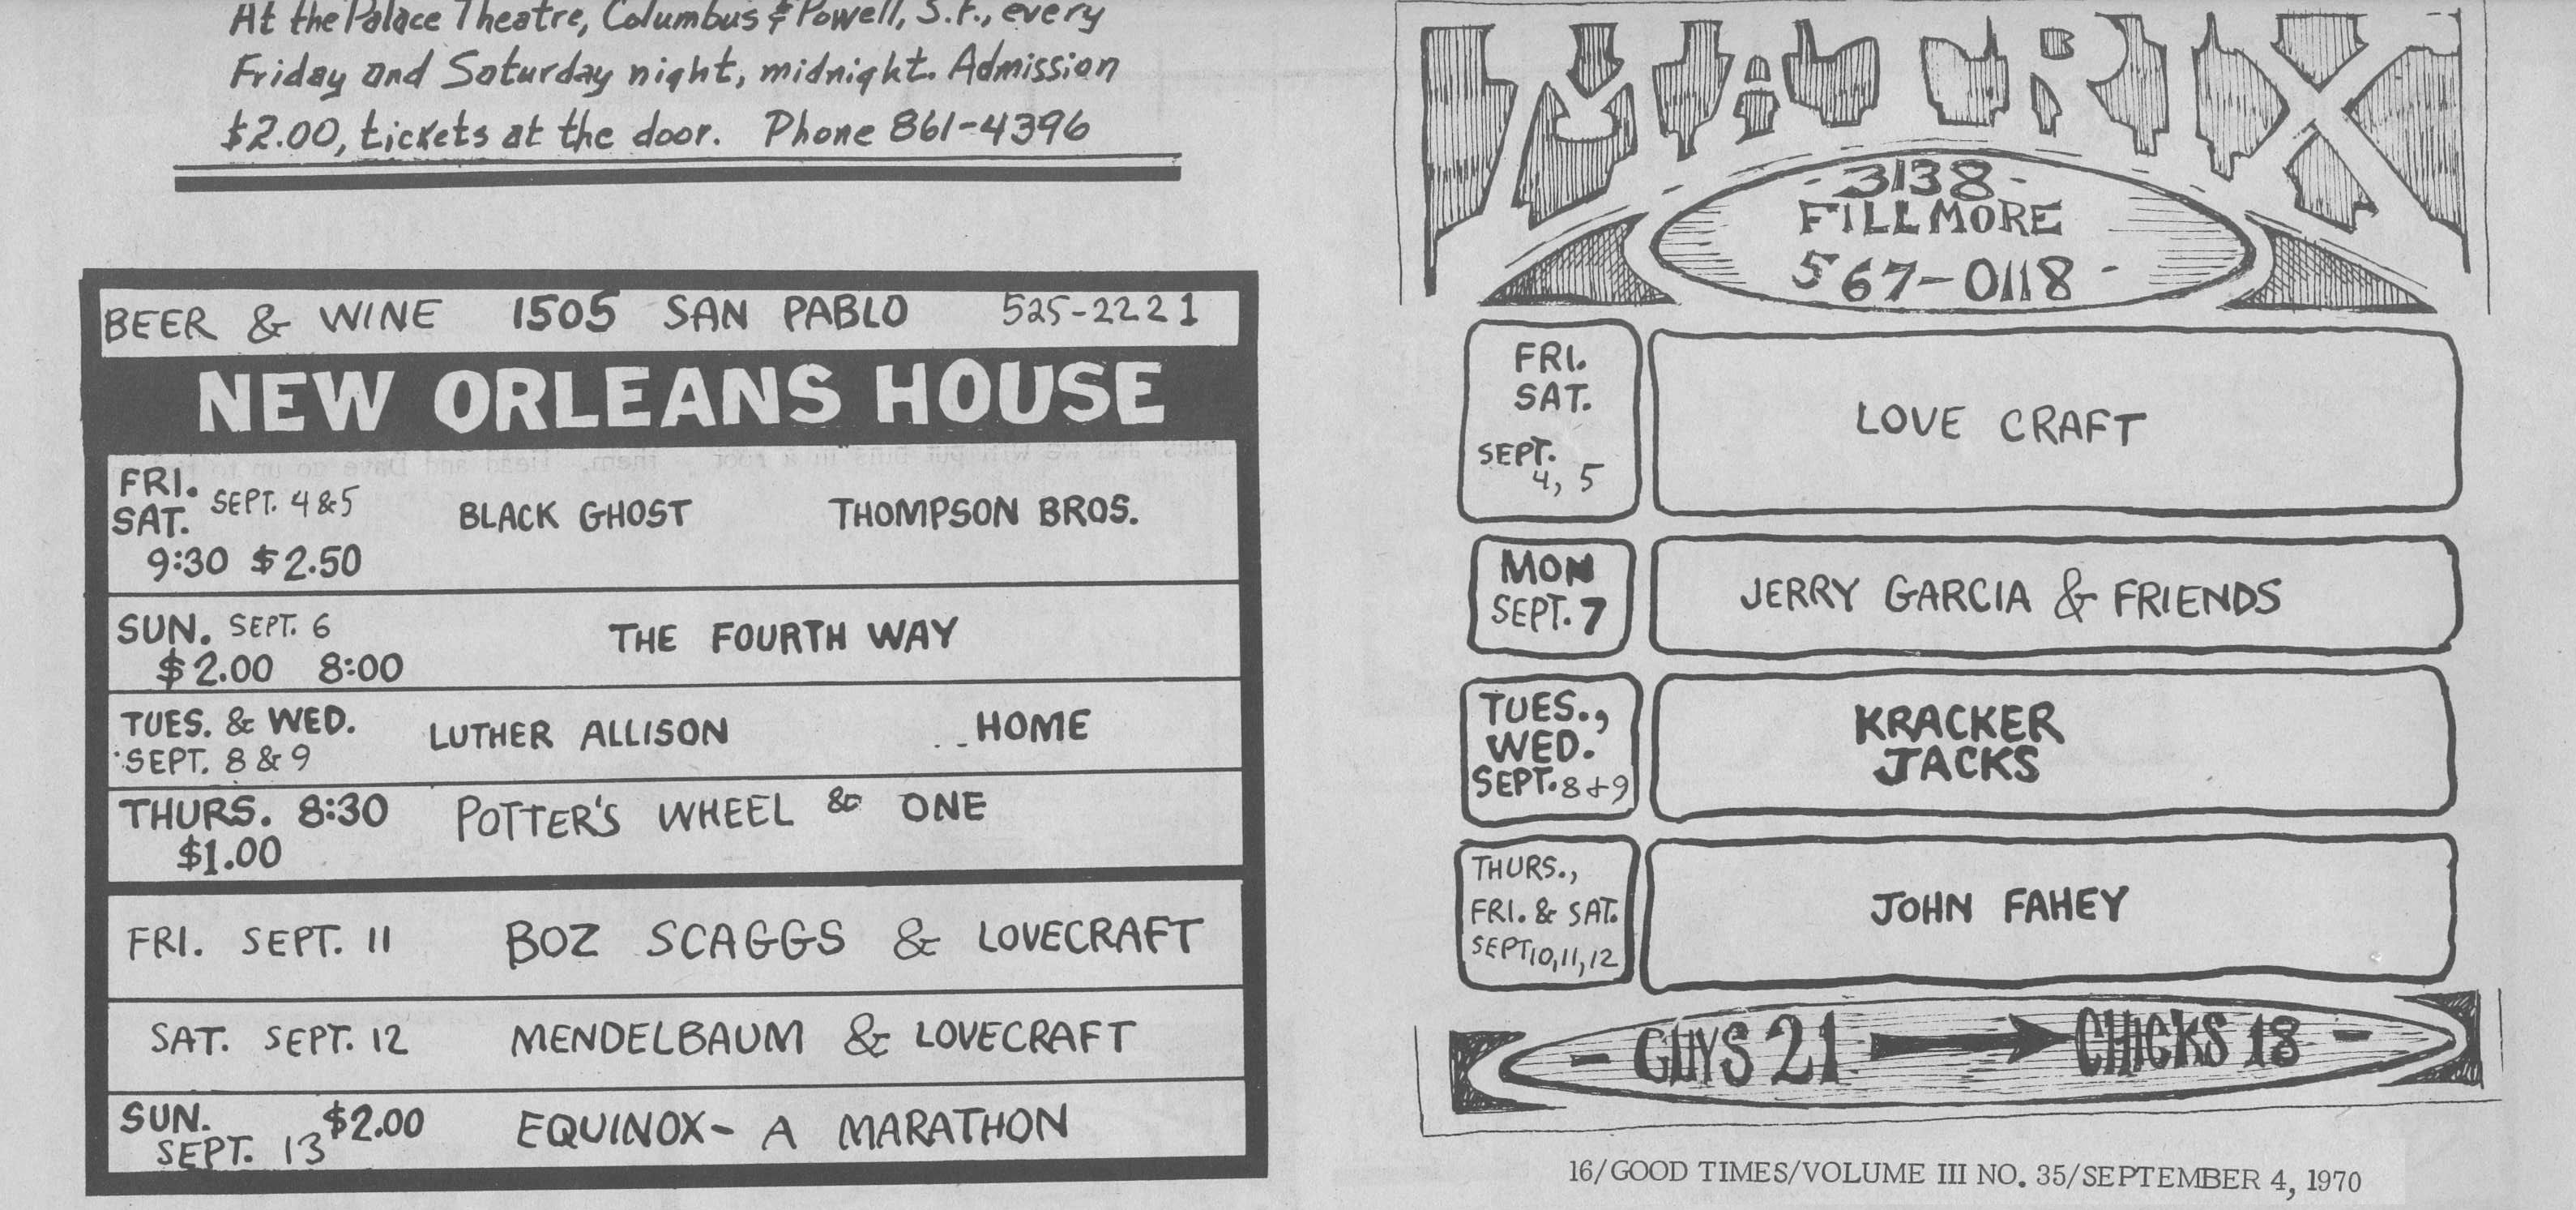 At the Palace Theatre, Columbus & Powell, S.F., every
Friday and Saturday night, midnight. Admission
$2.00, tickets at the door. Phone 861-4396
BEER & WINE 1505 SAN PABLO 525-2221
NEW ORLEANS HOUSE
FRI.
SAT. SEPT. 4 & 5 BLACK GHOST THOMPSON BROS.
9:30 $2.50
SUN. SEPT. 6 THE FOURTH WAY
$2.00 8:00
TUES. & WED. LUTHER ALLISON HOME
SEPT. 8 & 9
THURS. 8:30 POTTER'S WHEEL & ONE
$1.00
FRI. SEPT. 11 BOZ SCAGGS & LOVECRAFT
SAT. SEPT. 12 MENDELBAUM & LOVECRAFT
SUN. $2.00 EQUINOX- A MARATHON
SEPT. 13
MATRIX
-3138-
FILLMORE
567-0118-
FRI.
SAT.
SEPT.
4, 5
LOVE CRAFT
MON
SEPT. 7
JERRY GARCIA & FRIENDS
TUES.,
WED.
SEPT. 8+9
KRACKER
JACKS
THURS.,
FRI. & SAT.
SEPT 10, 11, 12
JOHN FAHEY
- GUYS 21 CHICKS 18 -
16/GOOD TIMES/VOLUME III NO. 35/SEPTEMBER 4, 1970